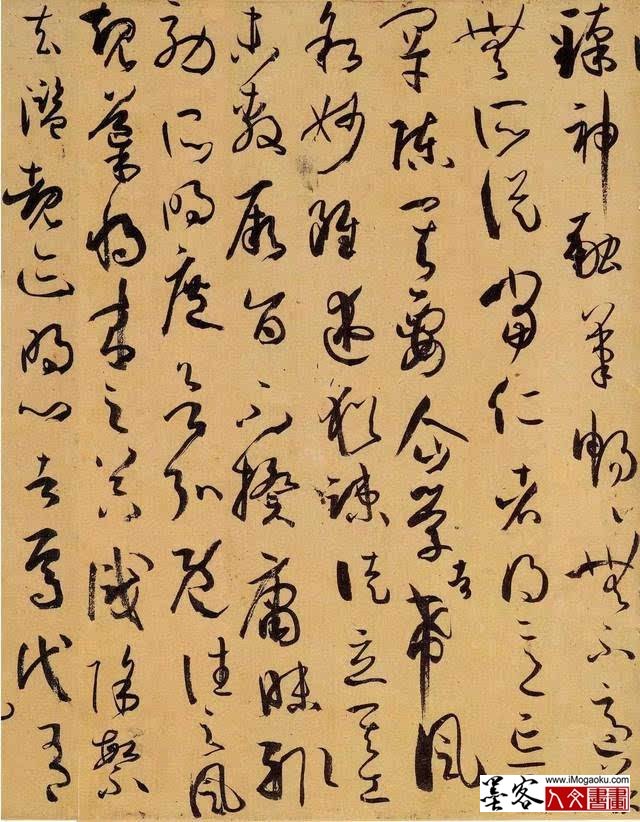 臻神融筆暢〻無不適
無所從當仁者得意忘
罕陳其要企學者希風
敘妙雖述猶疎徒立其工
未敷厥旨不揆庸昧輒
効所明庶欲弘既往之風
規導將來之器識除繁
去濫覩迹明心者焉代有
墨客 www.iMogaoku.com
人文書畫